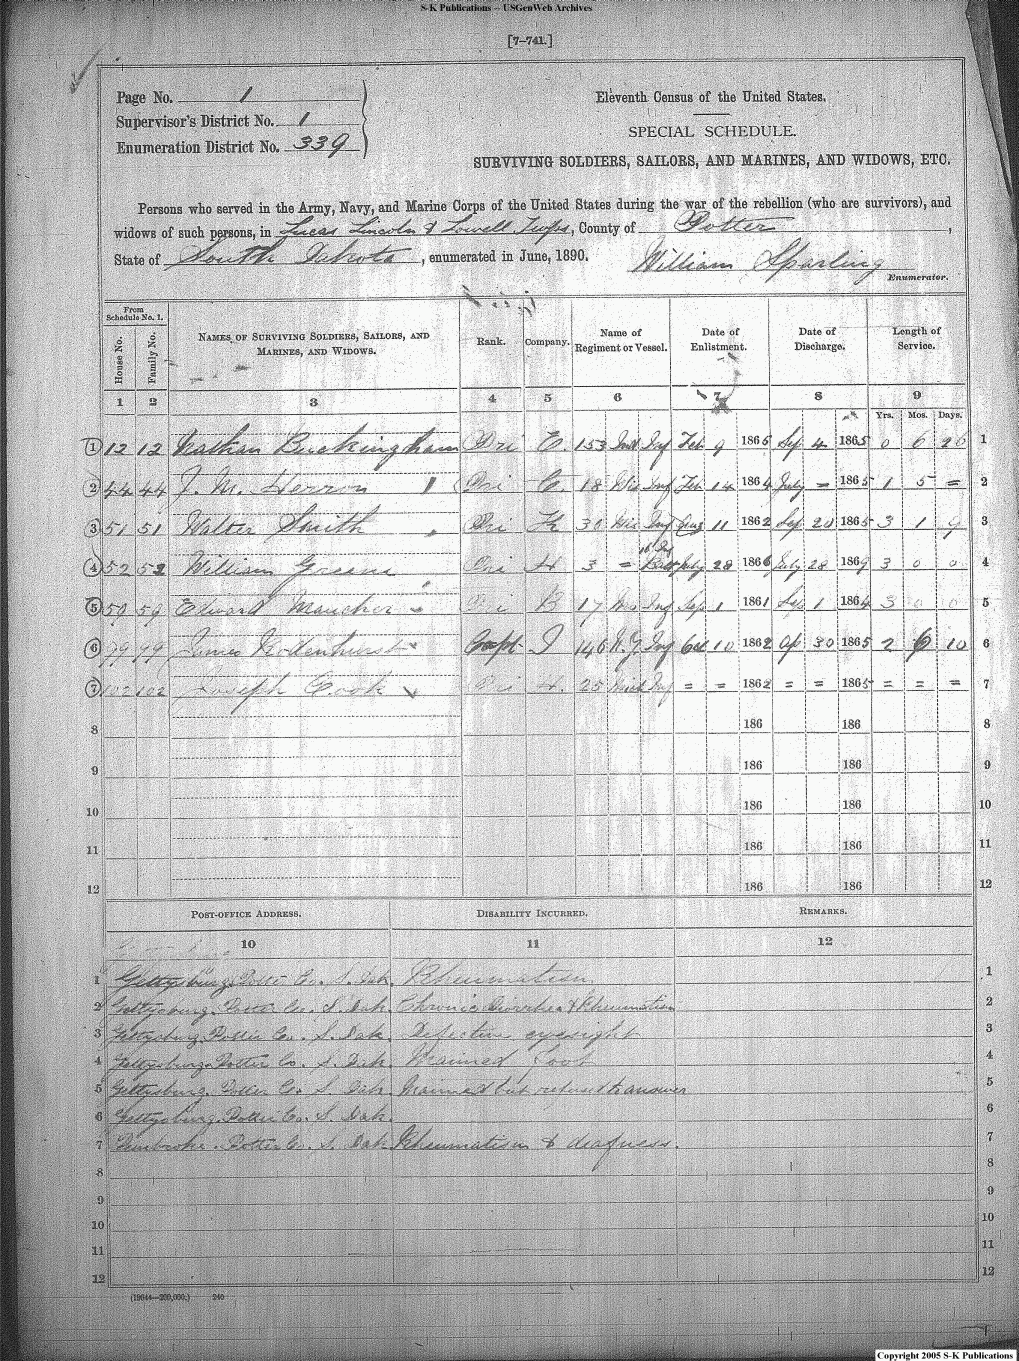 S-K Publications -- USGenWeb Archives
[7-741.]
Page No. 1
Supervisor's District No. 1
Enumeration District No. 339
Eleventh Census of the United States.
SPECIAL SCHEDULE.
SURVIVING SOLDIERS, SAILORS, AND MARINES, AND WIDOWS, ETC.
Persons who served in the Army, Navy, and Marine Corps of the United States during the war of the rebellion (who are survivors), and
widows of such persons, in Lucas Lincoln & Lowell Twps, County of Potter,
State of South Dakota, enumerated in June, 1890. William Sparling
Enumerator.
From Schedule No. 1.
House No. Family No. NAMES OF SURVIVING SOLDIERS, SAILORS, AND MARINES, AND WIDOWS. Rank. Company. Name of Regiment or Vessel. Date of Enlistment. Date of Discharge. Length of Service.
1 2 3 4 5 6 7 8 9
Yrs. Mos. Days.
1 12 12 Nathan Buckingham Pri E. 153 Ind Inf Feb 9 1865 Sep 4 1865 0 6 26 1
2 44 44 J. M. Herron Pri C. 18 Wis Inf Feb 14 1864 July = 1865 1 5 = 2
3 51 51 Walter Smith Pri K 30 Wis Inf Aug 11 1862 Sep 20 1865 3 1 9 3
4 52 52 William Greene Pri H 3 = July 28 1866 July 28 1869 3 0 0 4
5 59 59 Edward Pri B 17 Inf Sep 1 1861 Sep 1 1864 3 0 0 5
6 99 99 James Rodenhurst Capt I 146 N.Y. Inf Oct 10 1862 Ap 30 1865 2 6 10 6
7 102 102 Joseph Cook Pri H. 25 Mich Inf = = 1862 = = 1865 = = = 7
8 186 186 8
9 186 186 9
10 186 186 10
11 186 186 11
12 186 186 12
POST-OFFICE ADDRESS. DISABILITY INCURRED. REMARKS.
10 11 12
1 Gettysburg, Potter Co. S. Dak. Rheumatism 1
2 Gettysburg. Potter Co. S. Dak. Chronic Diorrhea & Rheumatism 2
3 Gettysburg. Potter Co. S. Dak. Defective eyesight 3
4 Gettysburg. Potter Co. S. Dak. Maimed foot 4
5 Gettysburg. Potter Co. S. Dak. Maimed but refused to answer 5
6 Gettysburg. Potter Co. S. Dak. 6
7 Pembroke. Potter Co. S. Dak. Rheumatism & deafness. 7
8 8
9 9
10 10
11 11
12 12
(19644—200,000.) 240
Copyright 2005 S-K Publications